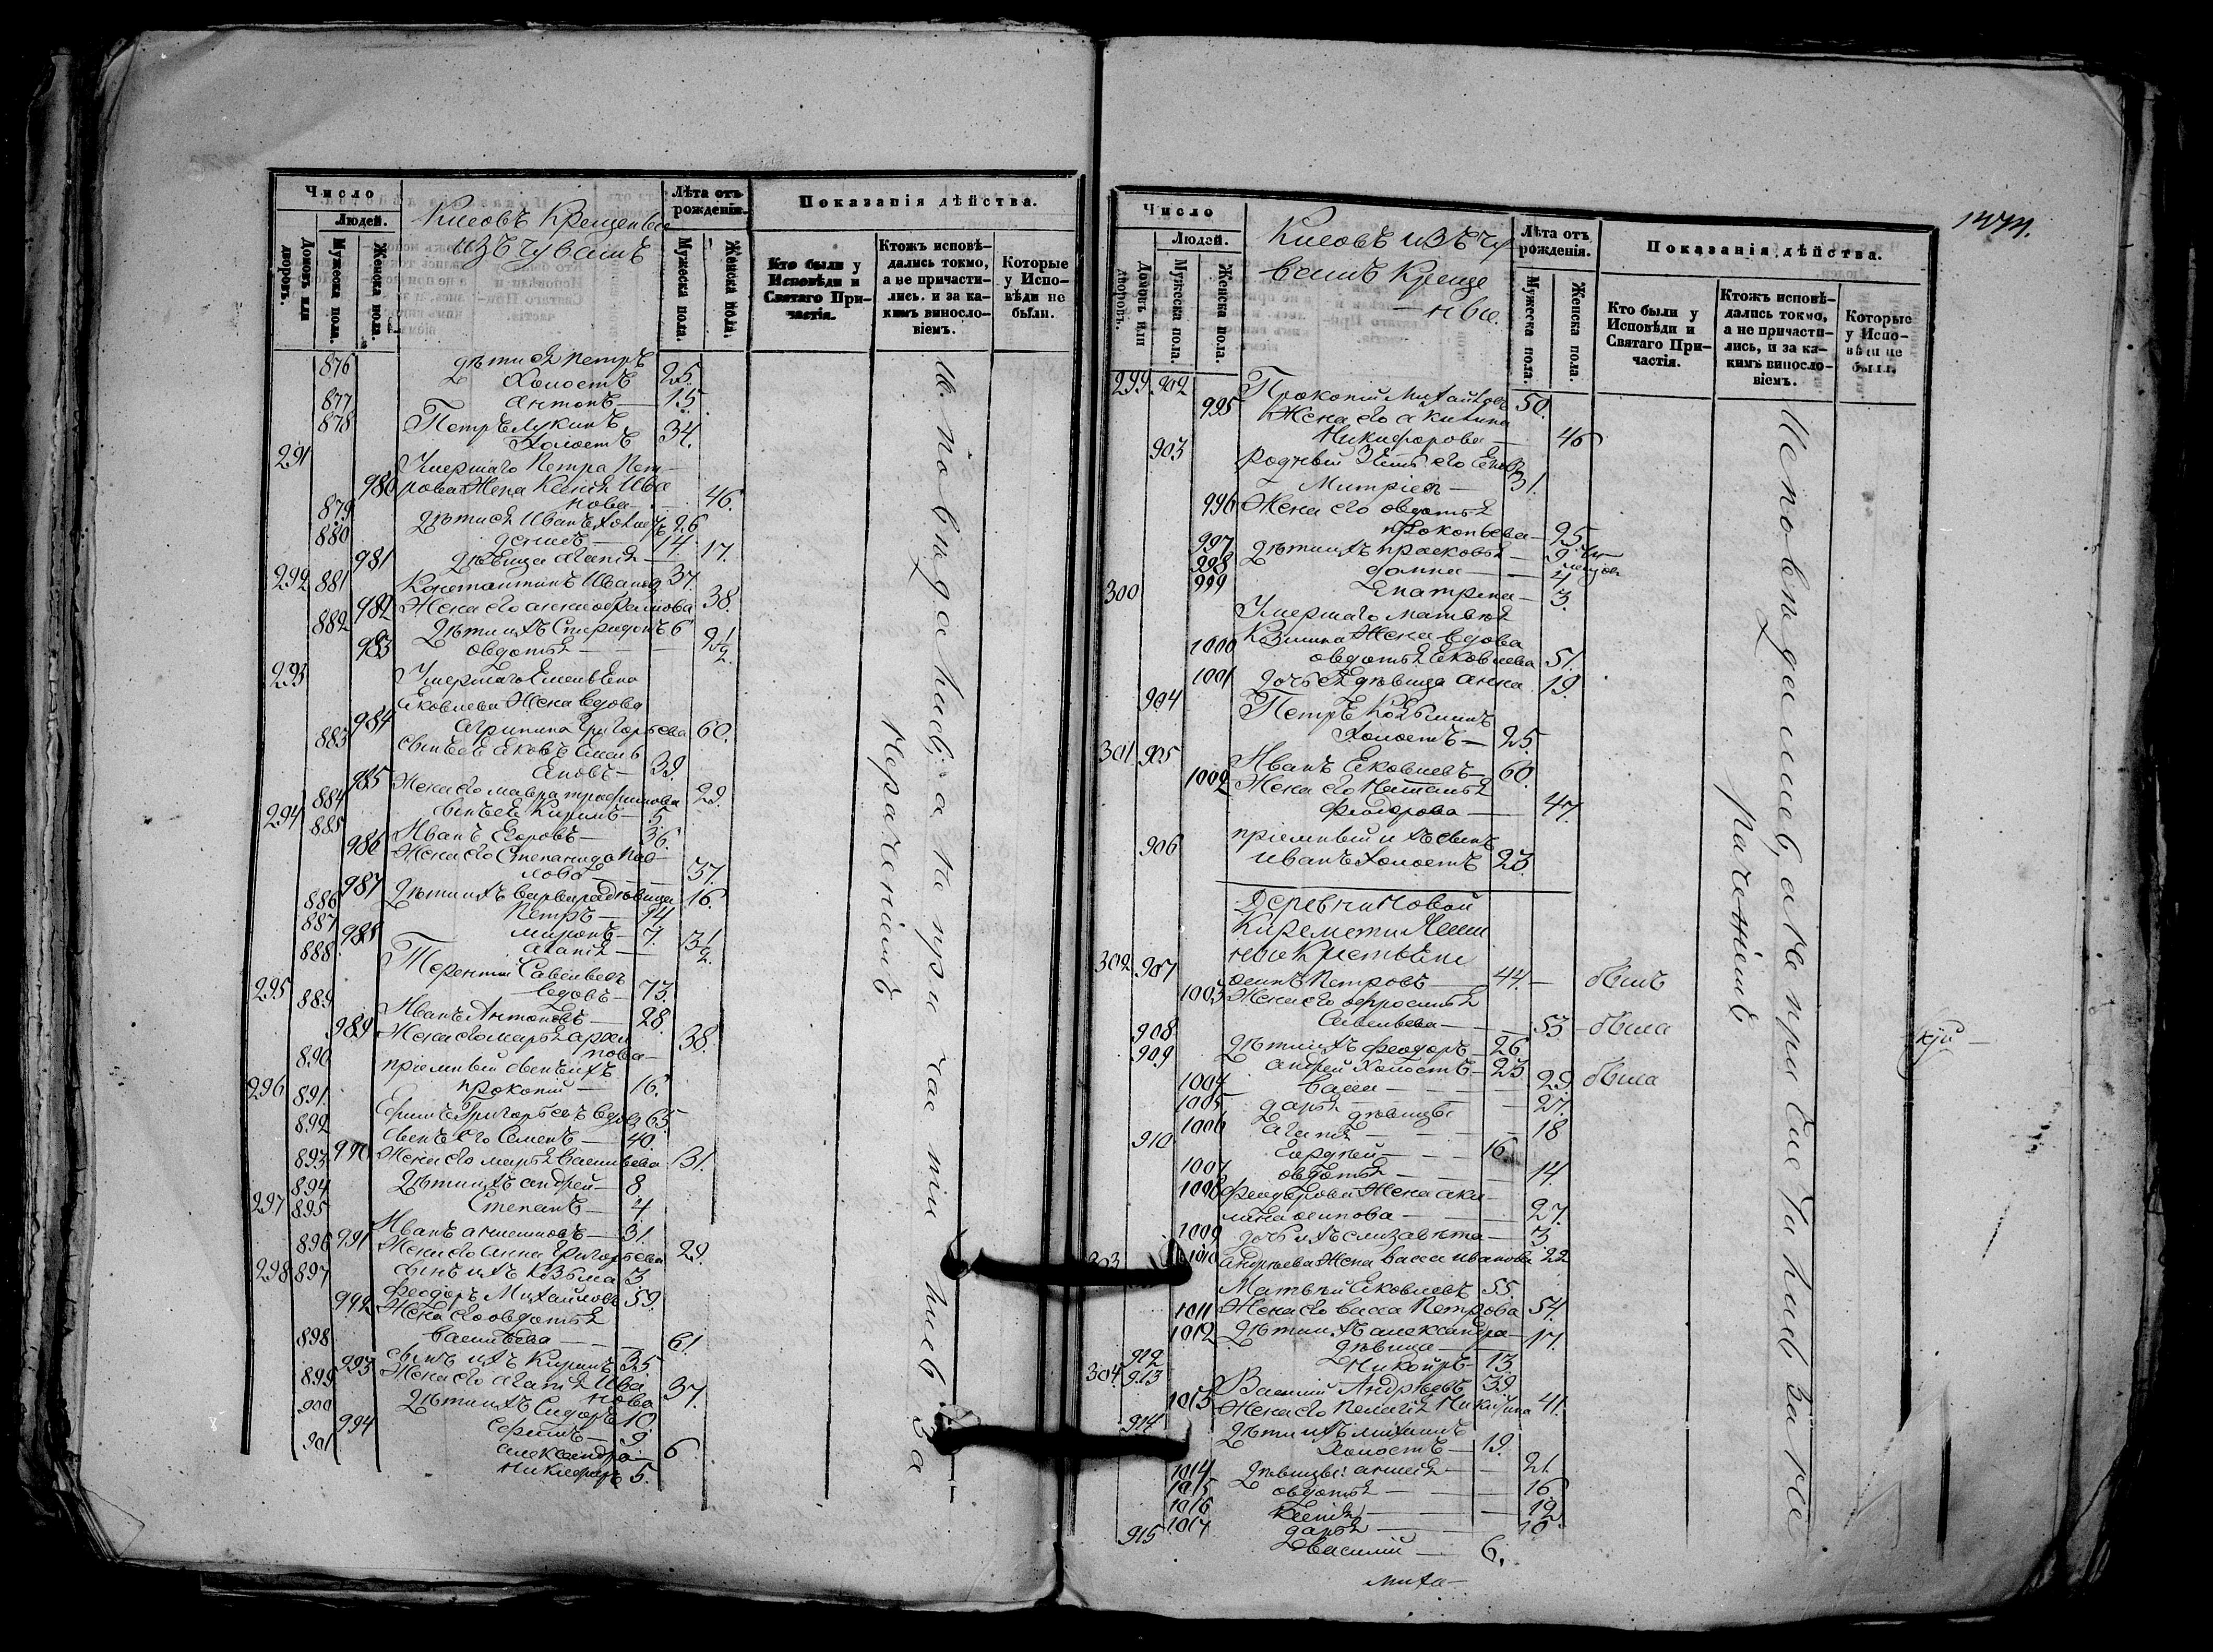 Число
Людей.
Домовъ или дворовъ.
Мужеска пола.
Женска пола.
Крещеные
изъ чувашъ
Лѣта отъ рожденія.
Мужеска пола.
Женска пола.
Показанія дѣйства.
Кто были у Исповѣди и Святаго Причастія.
Ктожъ исповѣдались токмо, а не причастились. и за какимъ винословіемъ.
Которые у Исповѣди не были.
876 дѣти ея Петръ
холостъ 25.
877 антонъ — 15
878 Петръ Лукинъ
холостъ 34.
291 Умершаго Петра Пет-
980 рова жена Ксенія Ива
нова — 46.
879 дѣти ея Иванъ холос 26
880 денисъ — 14.
981 дѣвица агапія — 17.
292 881 Константинъ Ивановъ 37.
982 Жена его анна 38.
882 дѣти ихъ Спиридонъ 6
983 овдотья — 2½
293 Умершаго Емельяна
Яковлева жена вдова
984 агрипина Григорьева 60.
883 сынъ ея Яковъ Емель
яновъ — 39.
985 Жена его мавра трофимова 29.
884 сынъ ея Кирилъ — 5.
294 885 Иванъ Егоровъ — 36.
986 Жена его Степанида Пав-
лова — 37.
987 дѣти ихъ варвара дѣвица 16.
886 Петръ — 14
887 миронъ — 7.
988 агапія — 3½
888 Терентий Савельевъ
вдовъ — 73.
295 889 Иванъ Антоновъ — 28.
989 Жена его марья архи
пова — 38.
890 пріемный сынъ ихъ
прокопій — 16.
296 891 Ефимъ Григорьевъ вдовъ 65.
892 сынъ его Семенъ — 40.
990 Жена его марья Васильева 31.
893 дѣти ихъ андрей — 8
894 Степанъ — 4
297 895 Иванъ анисимовъ — 31.
991 Жена его анна Григорьева 29.
896 сынъ ихъ Козьма 3
298 897 Феодоръ Михайловъ 59.
992 Жена его овдотья
васильева — 61.
898 сынъ ихъ Кирилъ 35
993 Жена его агапія Ива
нова 37.
899 дѣти ихъ Сидоръ 10
900 Ефимъ — 9
994 александра — 6
901 никифоръ 5.
исповѣдались, а не причастились за
нераченіемъ
1374.
Число
Людей.
Домовъ или дворовъ.
Мужеска пола.
Женска пола.
изъ чу
вашъ Креще
ные.
Лѣта отъ рожденія.
Мужеска пола.
Женска пола.
Показанія дѣйства.
Кто были у Исповѣди и Святаго Причастія.
Ктожъ исповѣдались токмо, а не причастились, и за какимъ винословіемъ.
Которые у Исповѣди не были.
299 902 Прокопій Михайловъ 50.
995 Жена его акилина
Никифорова — 46
903 родный зять его Яковъ
Митріевъ — 31.
996 Жена его овдотья
прокопьева — 25
997 дѣти ихъ прасковья — 9
998 домна — 4
999 Екатрина — 3.
300 Умершаго матвея
Козмина жена вдова
1000 овдотья Яковлева 51.
1001 дочь ея дѣвица анна 19.
904 Петръ Козьминъ
холостъ — 25.
301 905 Иванъ Яковлевъ — 60.
1002 Жена его Наталья
феодорова — 47.
906 пріемный ихъ сынъ
иванъ холостъ 23.
Деревни Новой
Киремети
302 907 осипъ Петровъ — 44. — былъ
1003 Жена его ефросинья
Савельева — 53 — была
908 дѣти ихъ Феодоръ — 26
909 андрей холостъ — 23
1004 васса — 29 была
1005 дарья дѣвицы — 27.
1006 агапія — 18
910 Сергѣй — 16
1007 овдотья — 14.
1008 Феодорова жена аки
лина осипова — 27.
1009 дочь ихъ елизавѣта — 3
1010 андрѣева жена васса иванова 22
303 Матвѣй Яковлевъ 55.
1011 Жена его васса Петрова 54.
1012 дѣти ихъ александра
дѣвица — 17.
912 Никофръ — 13.
304. 913 Василий Андрѣевъ 39.
1013 Жена его Пелагія Никитина 41.
914 дѣти ихъ михаилъ
холостъ — 19.
1014 дѣвицы: анисья — 21.
1015 овдотья — 16
1016 Ксенія — 12
1017 дарья — 10
915 василий — 6.
миха-
исповѣдались, а не причастились за не
раченіемъ
кій